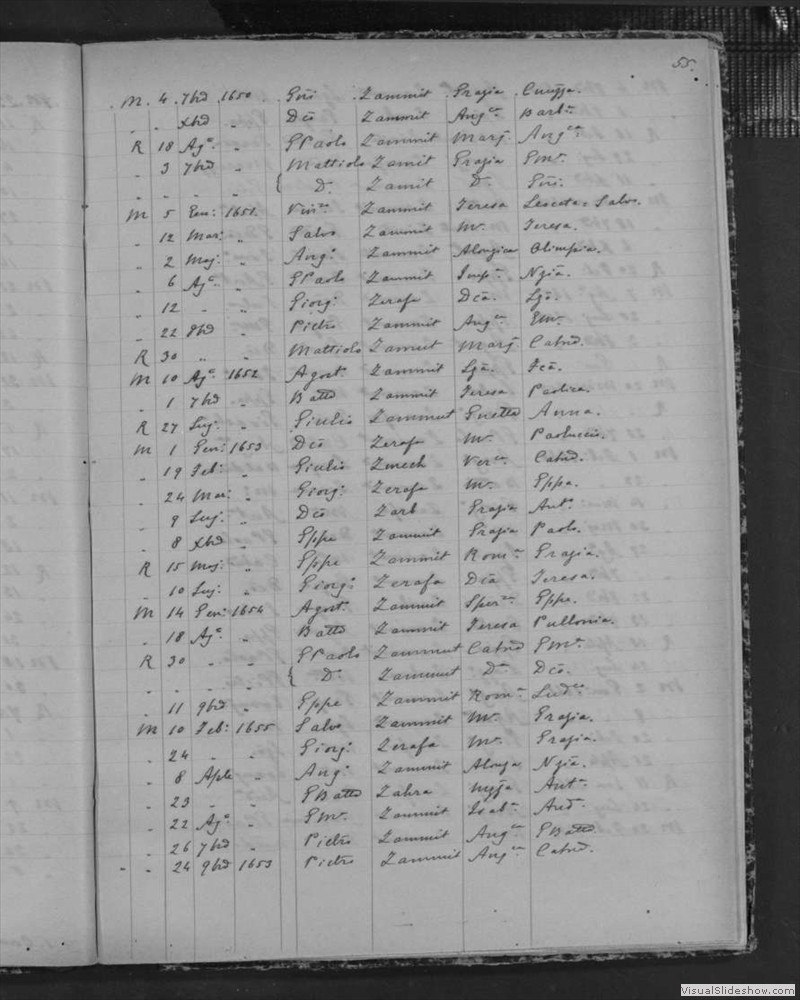 55.
M. 4 7bd 1650 Zammit Grazia
" " Xbd " Dco Zammit Ang:ca Barb:ra
R 18 Ag:o " GPaolo Zammit Marg Ang:ca
" 3 7bd " Mattiolo Zamit Grazia GM:a
" " " " { D:o Zamit D:a
M 5 Gen: 1651 Vin:zo Zammit Teresa Salv.
" 12 Mar: " Salvo Zammit M:a Teresa.
" 2 Mag: " Ang:o Zammit Olimpia.
" 6 Ag:o " GPaolo Zammit
" 12 " " Giorg:o Zerafa Dca
" 22 8bd " Pietro Zammit Ang:ca GM:a
R 30 " " Mattiolo Zammit Marg Catnd.
M 10 Ag:o 1652 Agost:o Zammit
" 1 7bd " Batta Zammit Teresa
R 27 Lug: " Giulio Zammut Anna.
M 1 Gen: 1653 Dco Zerafa M:a
" 19 Feb: " Giulio Zmech Ver:ca Catnd.
" 24 Mar: " Giorg:o Zerafa M:a Gppa.
" 9 Lug: " Dco Zarb Grazia Ant:o
" 8 Xbd " Gppe Zammit Grazia Paolo.
R 15 Mag: " Gppe Zammit Rom:a Grazia.
" 10 Lug: " Giorg:o Zerafa Dca Teresa.
M 14 Gen: 1654 Agost:o Zammit Sper:za Gppe.
" 18 Ag:o " Batta Zammit Teresa Pullonia.
R 30 " " GPaolo Zammut Catnd GM:a
" " " " { D:o Zammut D:a Dco.
" 11 9bd " Gppe Zammit Rom:a Lud:ca
M 10 Feb: 1655 Salvo Zammit M:a Grazia.
" 24 " " Giorg:o Zerafa M:a Grazia.
" 8 Aple " Ang:o Zammit
" 23 " " GBatta Zahra Ant:o
" 22 Ag:o " GM:a Zammit Isab:a And.
" 26 7bd " Pietro Zammit Ang:ca GBatta
" 24 9bd 1653 Pietro Zammit Ang:ca Catnd.
VisualSlideshow.com